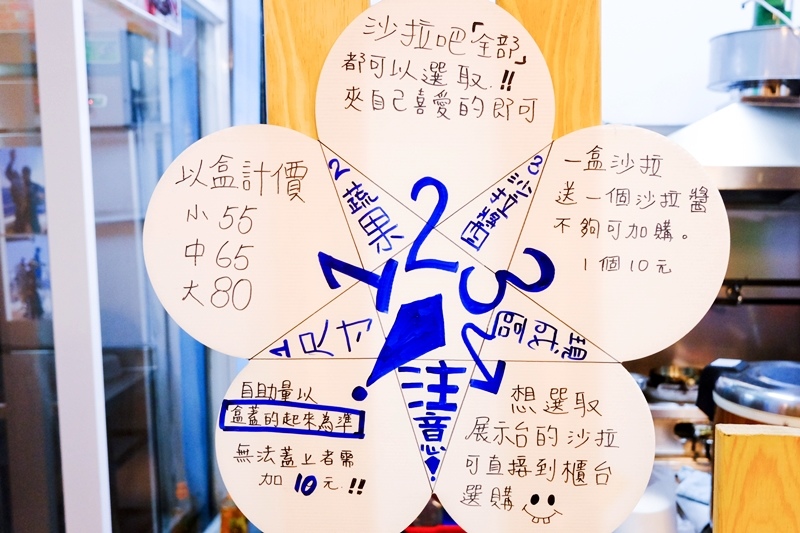 沙拉吧「全部」
都可以選取.!!
夾自己喜愛的即可
以盒計價
小 55
中 65
大 80
一盒沙拉
送一個沙拉醬
不夠可加購。
1個10元
2 蔬果
3 沙拉醬
1 2 3
1 尺寸
注意!
自助量以
盒蓋的起來為準
無法蓋上者需
加 10 元.!!
想選取
展示台的沙拉
可直接到櫃台
選購